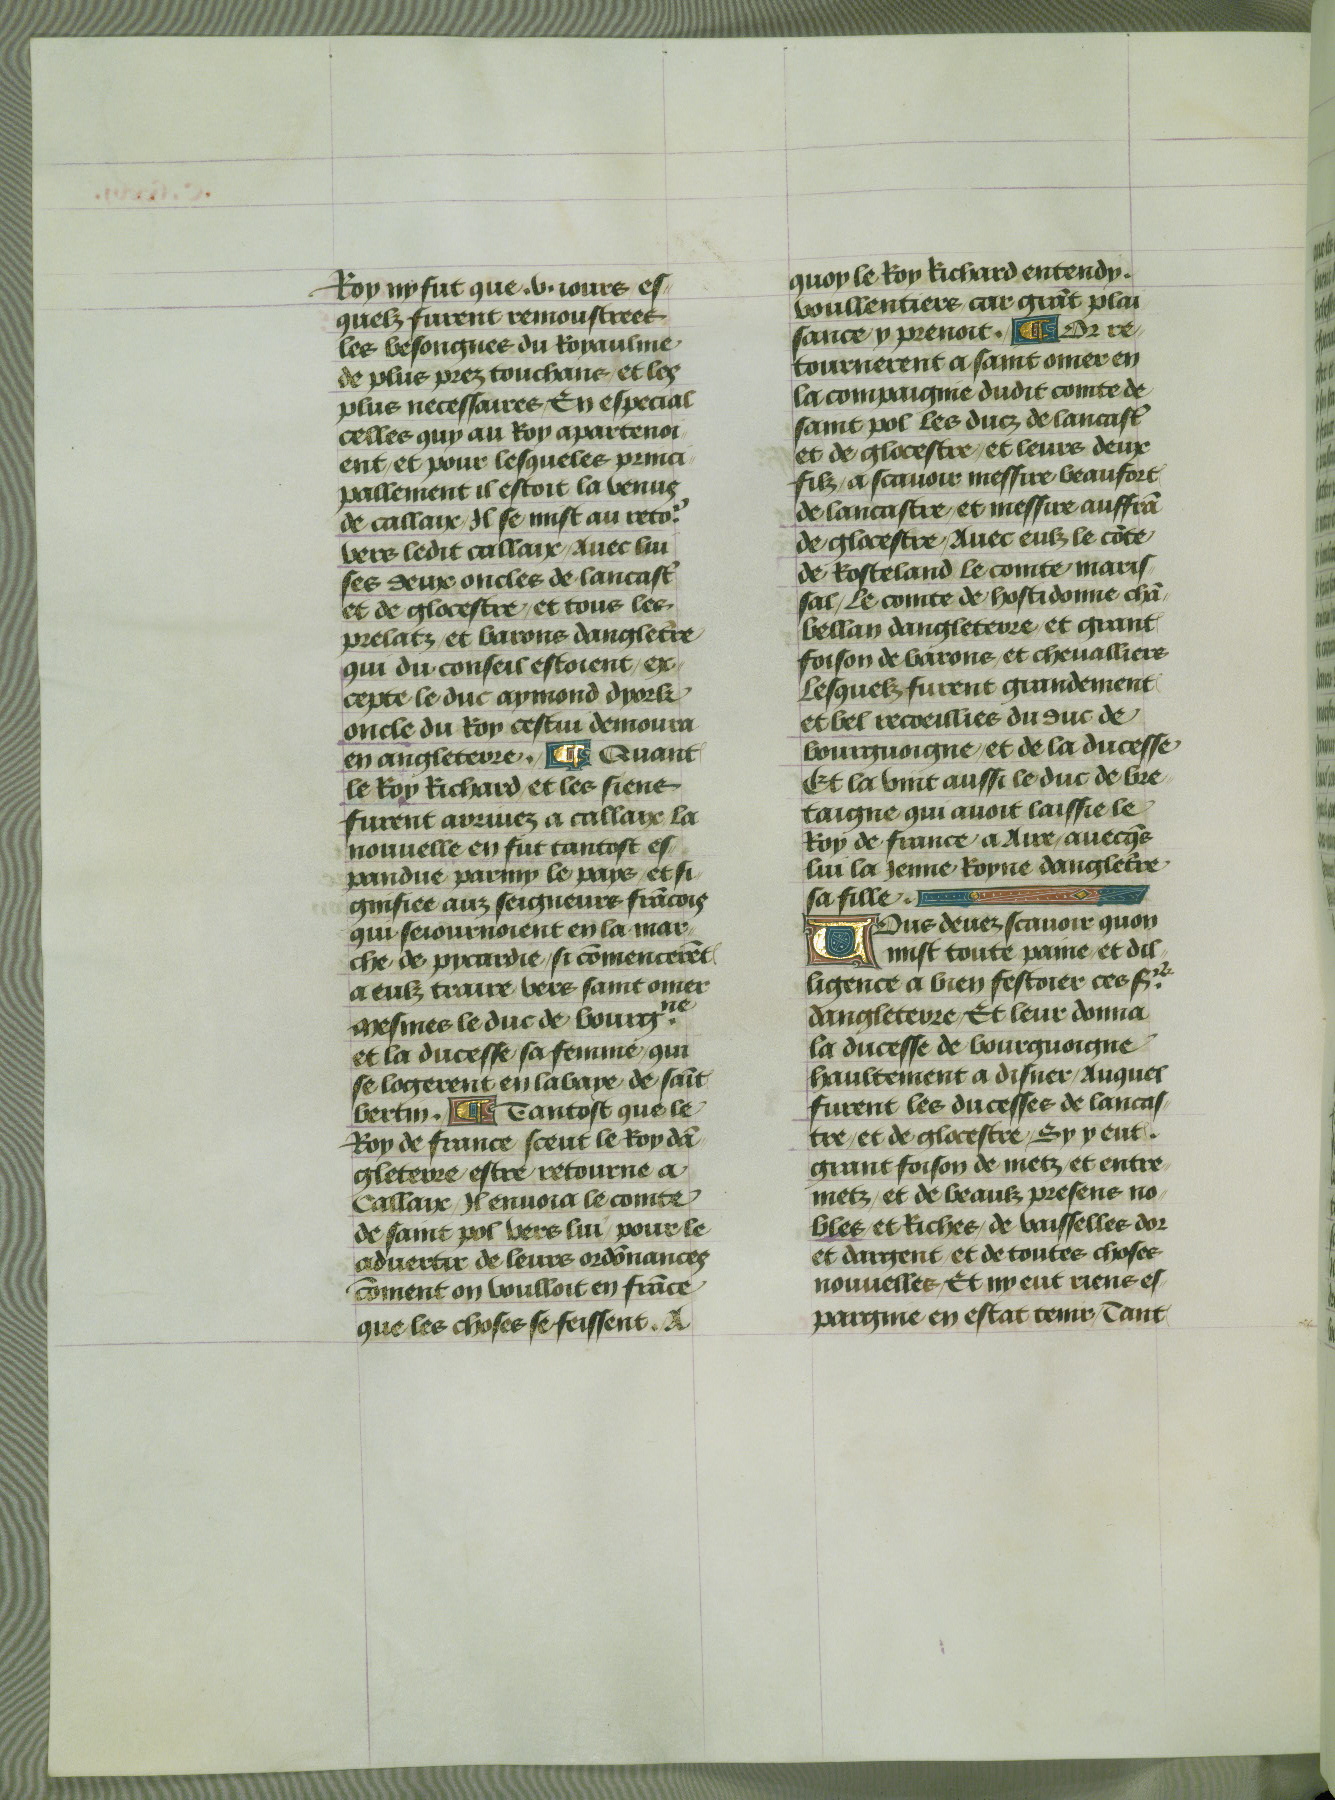 Roy ny fut que .v. iours es
quelz furent remoustrees
les besongnes du Royaulme
de plus prez touchans et les
plus necessaires / En especial
celles quy au Roy apartenoi
ent / et pour lesqueles princi
pallement il estoit la venus
de callaix / Il se mist au retoʳ
vers ledit callaix / Auec lui
ses deux oncles de lancast̉
et de glocestre / et tous les
prelatz / et barons dangleter̃e
qui du conseil estoient / ex
cepte le duc aymond dyork
oncle du Roy cestui demoura
en angleterre . ¶ Quant
le Roy Richard / et les siens
furent arriuez a callaix la
nouuelle en fut tantost es
pandue parmy le pays / et si
gnifiee aux seigneurs frãcois
qui seiournoient en la mar
che de pycardie / si cõmencerẽt
a eulz traire vers saint omer
Mesmes le duc de bourgⁿᵉ.
et la ducesse / sa femme / qui
se logerent en labaye de sait̃
bertin . ¶ Tantost que le
Roy de france sceut le Roy dã
gleterre estre retourne a
Callaix / Il enuoia le comte
de saint pol vers lui / pour le
aduertir de leurs ordõnances
cõment on voulloit en frãce
que les choses se feissent . A
quoy le Roy Richard entendy .
voullentiers car grãt plai
sance y prenoit . ¶ Or re
tournerent a saint omer en
la compaignie dudit comte de
saint pol les ducz de lancast̉
et de glocestre / et leurs deux
filz / a scauoir messire beaufort
de lancastre / et messire auffrã
de glocestre / Auec eulz le cõte
de Rosteland le comte maris
sal / Le comte de hostidonne chã
bellan dangleterre / et grant
foison de barons / et cheualliers
Lesquelz furent grandement
et bel recoeillies du duc de
bourguoigne / et de la ducesse
Et la vint aussi le duc de bre
taigne qui auoit laissie le
Roy de france a Aire / auecq̃s
lui la Jenne Royne dangleter̃e
sa fille .
Vous deuez scauoir quon
mist toute paine et dil
ligence a bien festoier ces sʳˢ.
dangleterre / Et leur donna
la ducesse de bourguoigne
haultement a disner / Auquel
furent les ducesses de lancas
tre / et de glocestre / Sy y eut .
grant foison de metz / et entre
metz / et de beaulz presens no
bles et Riches / de vaisselles dor
et dargent et de toutes choses
nouuelles / Et ny eut riens es
pargnie en estat tenir / Tant